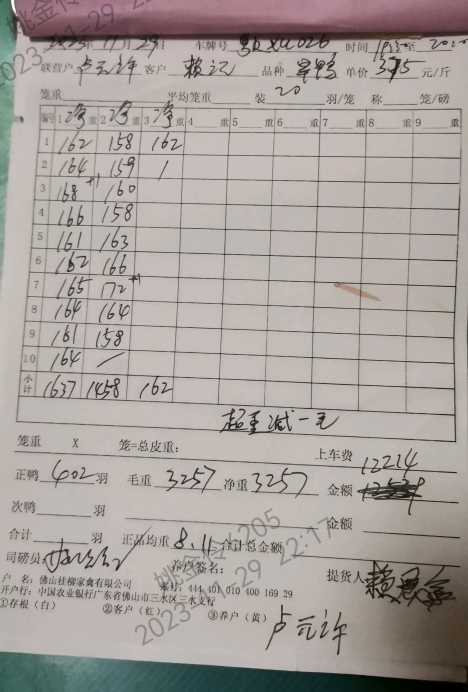 2023年 11月 29日 车牌号 时间 至 20:20
联营户 卢云许 客户 赖记 品种 单价 3.75 元/斤
笼重 平均笼重 装 20 羽/笼 称 笼/磅
编号 1 净 重 2 净 重 3 净 重 4 重 5 重 6 重 7 重 8 重 9 重
1 162 158 162
2 164 159 /
3 168 +1 160
4 166 158
5 161 163
6 162 166
7 165 172 +1
8 164 164
9 161 158
10 164 /
小计 1637 1458 162
超重减一毛
笼重 X 笼=总皮重: 上车费
正鸭 402 羽 毛重 3257 净重 3257 金额 12214
次鸭 羽 金额
合计 羽 正品均重 8.11 合计总金额
司磅员: 养户签名: 提货人
户 名: 佛山桂柳家禽有限公司 账号: 444 401 010 400 169 29
开户行: 中国农业银行广东省佛山市三水区三水支行
①存根(白) ②客户(红) ③养户(黄)
卢云许
2023-11-29 22:17